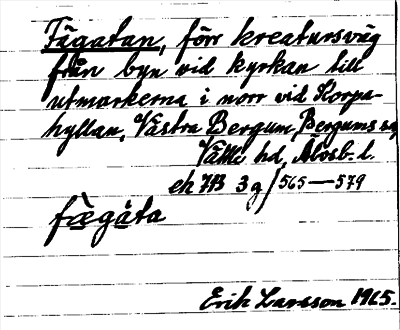 Fägatan, förr kreatursväg
från byn vid kyrkan till
utmarkerna i norr vid Korpa-
hyllan, Västra Bergum, Bergums sn,
Vättle hd, Älvsb. l.
ek 7B 3g / 565—579
fægáta
Erik Larsson 1965.